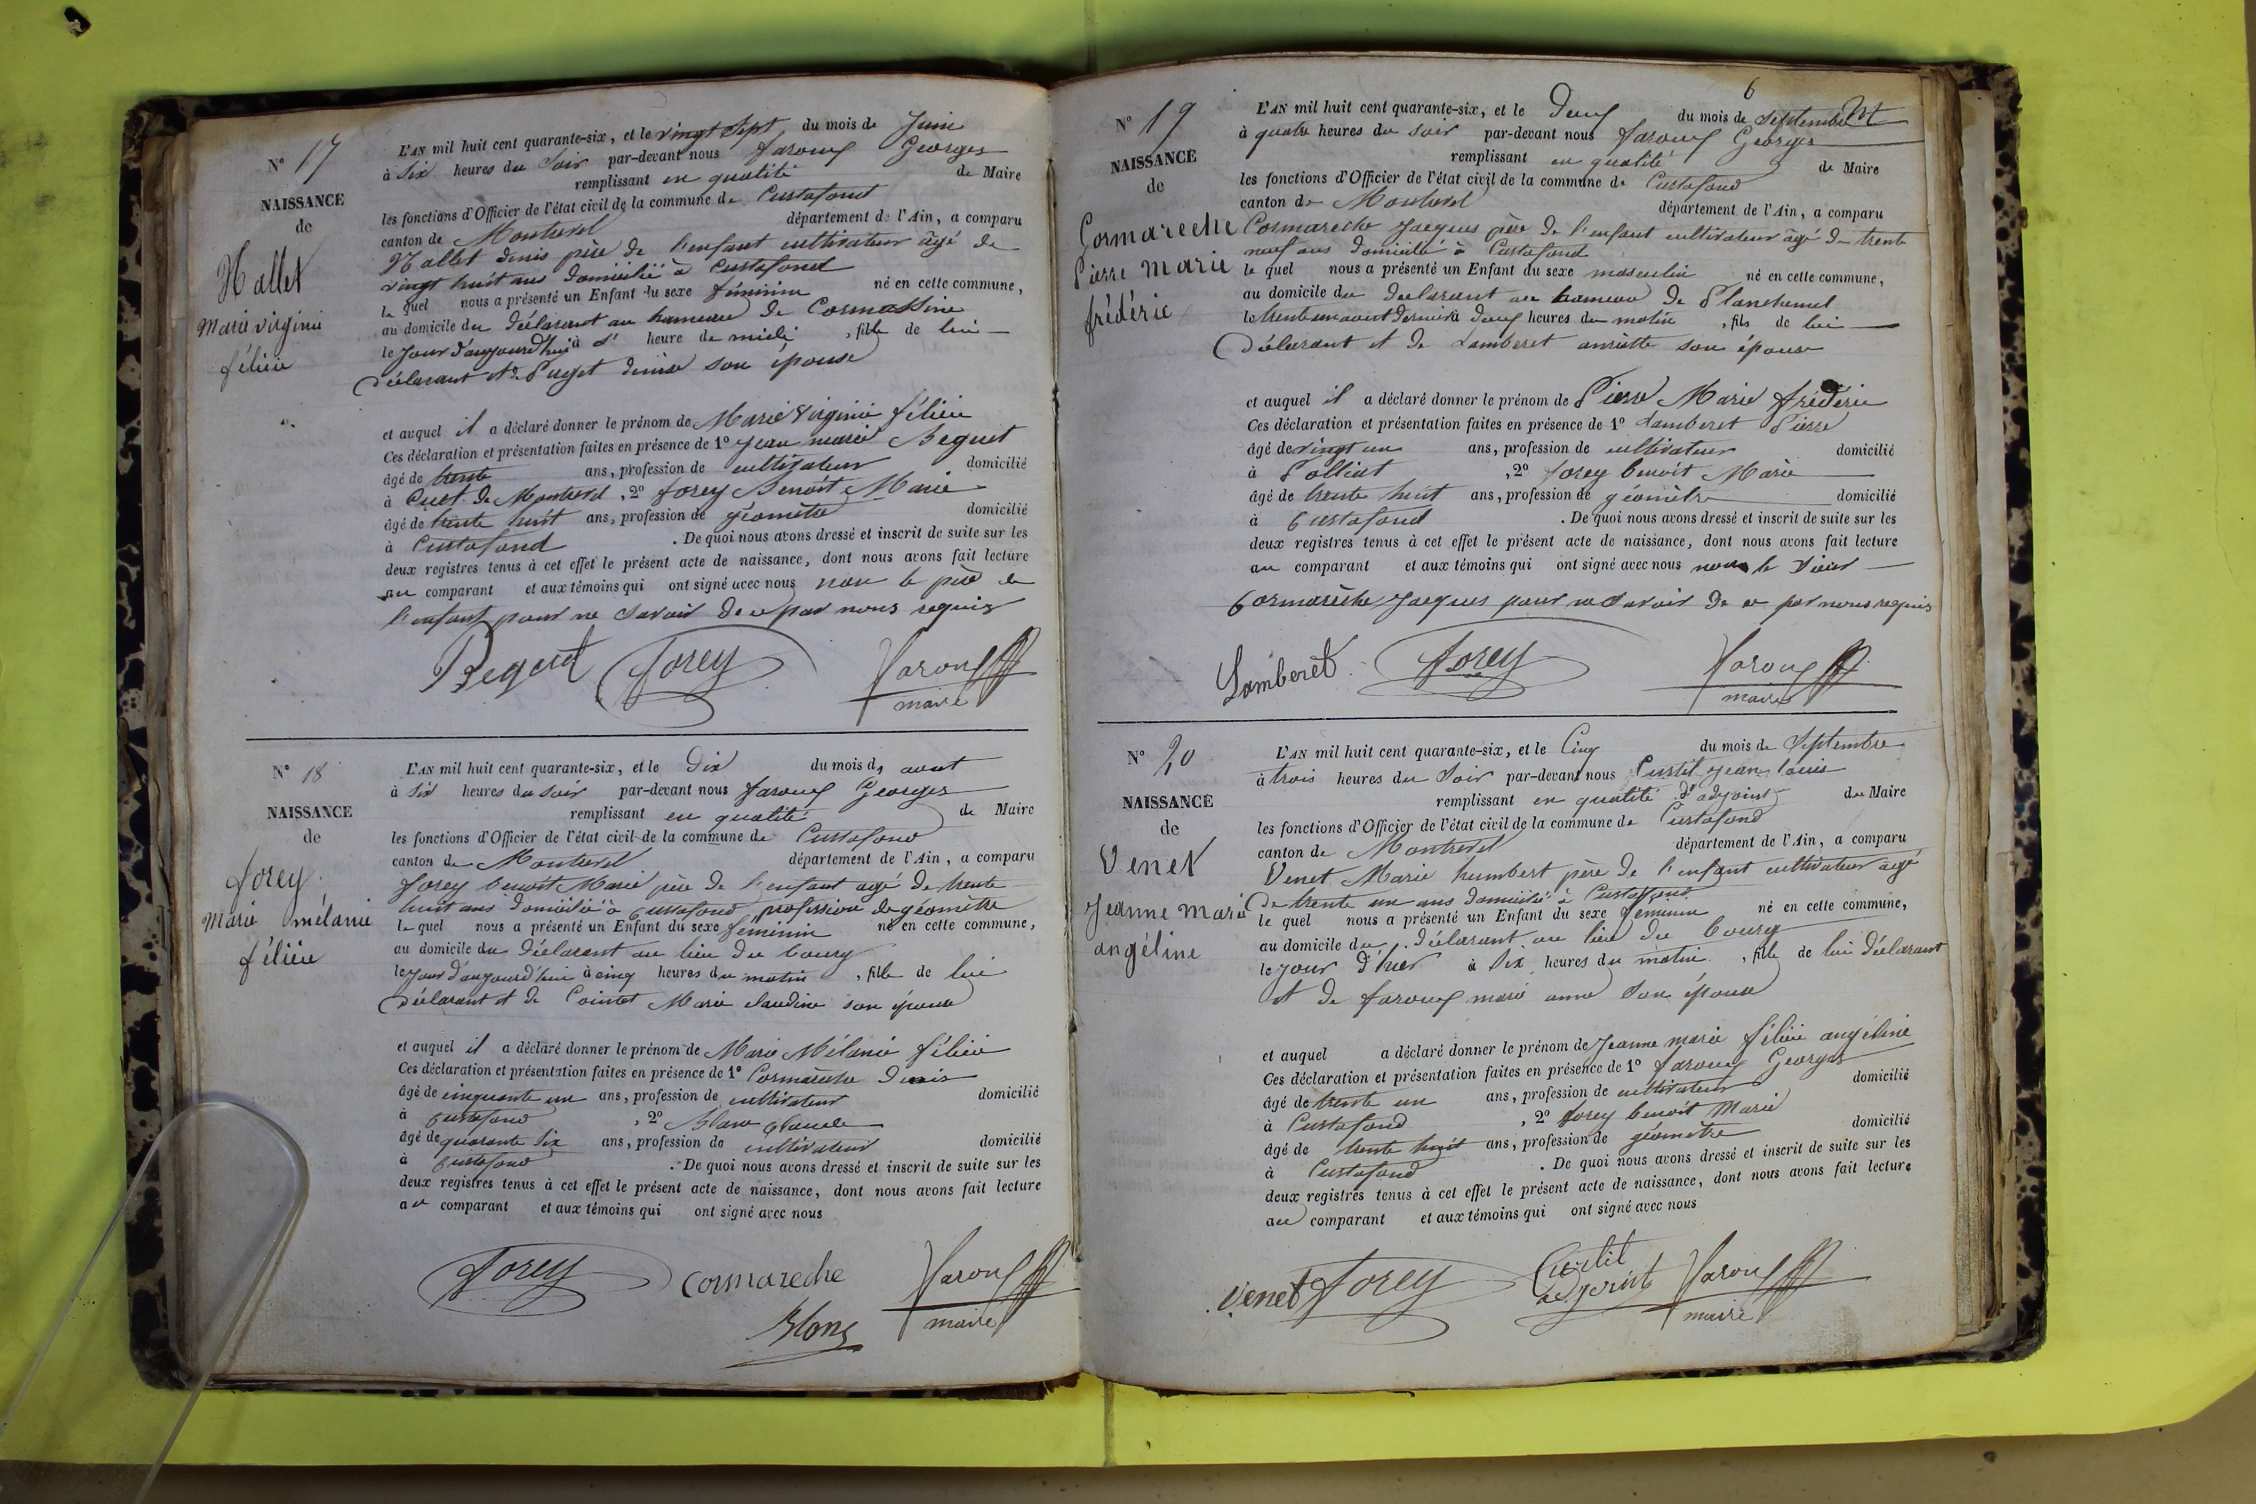 N° 17
NAISSANCE
de
Mallet
Marie virginie
félicie
L'AN mil huit cent quarante-six, et le vingt sept du mois de Juin
à six heures du soir par-devant nous Georges
remplissant en qualité de Maire
les fonctions d'Officier de l'état civil de la commune de Curtafond
canton de Montrevel département de l'Ain, a comparu
Mallet denis père de l'enfant cultivateur âgé de
vingt huit ans domicilié à Curtafond
le quel nous a présenté un Enfant du sexe féminin né en cette commune,
au domicile du déclarant au hameau de Cormassine
le jour d'aujourd'hui à heure de midi, fille de lui
déclarant et de Puget denise son épouse
et auquel il a déclaré donner le prénom de Marie Virginie félicie
Ces déclaration et présentation faites en présence de 1° Jean marie Beguet
âgé de trente ans, profession de cultivateur domicilié
à Cuet de Montrevel, 2° forey Benoît Marie
âgé de trente huit ans, profession de géomètre domicilié
à Curtafond. De quoi nous avons dressé et inscrit de suite sur les
deux registres tenus à cet effet le présent acte de naissance, dont nous avons fait lecture
au comparant et aux témoins qui ont signé avec nous non le père de
l'enfant pour ne savoir de ce par nous requis
forey
maire
N° 18
NAISSANCE
de
forey
Marie mélanie
félicie
L'AN mil huit cent quarante-six, et le dix du mois d'aout
à six heures du soir par-devant nous Georges
remplissant en qualité de Maire
les fonctions d'Officier de l'état civil de la commune de Curtafond
canton de Montrevel département de l'Ain, a comparu
forey benoit Marie père de l'enfant agé de trente
huit ans domicilié à Curtafond profession de géomètre
le quel nous a présenté un Enfant du sexe féminin né en cette commune,
au domicile du déclarant au lieu du bourg
le jour d'aujourd'hui à cinq heures du matin, fille de lui
déclarant et de Cointet Marie claudine son épouse
et auquel il a déclaré donner le prénom de Marie Mélanie félicie
Ces déclaration et présentation faites en présence de 1° Cormarèche denis
âgé de cinquante un ans, profession de cultivateur domicilié
à Curtafond, 2° Blanc claude
âgé de quarante six ans, profession de cultivateur domicilié
à Curtafond. De quoi nous avons dressé et inscrit de suite sur les
deux registres tenus à cet effet le présent acte de naissance, dont nous avons fait lecture
au comparant et aux témoins qui ont signé avec nous
forey cormareche
Blanc maire
6
N° 19
NAISSANCE
de
Cormareche
Pierre Marie
frédéric
L'AN mil huit cent quarante-six, et le deux du mois de septembre
à quatre heures du soir par-devant nous Georges
remplissant en qualité de Maire
les fonctions d'Officier de l'état civil de la commune de Curtafond
canton de Montrevel département de l'Ain, a comparu
Cormareche Jacques père de l'enfant cultivateur âgé de trente
neuf ans domicilié à Curtafond
le quel nous a présenté un Enfant du sexe masculin né en cette commune,
au domicile du declarant au hameau de
le trente un aout dernier à deux heures du matin, fils de lui
déclarant et de Lamberet anriette son épouse
et auquel il a déclaré donner le prénom de Pierre Marie frédéric
Ces déclaration et présentation faites en présence de 1° Lamberet Pierre
âgé de vingt un ans, profession de cultivateur domicilié
à Polliat, 2° forey benoît Marie
âgé de trente huit ans, profession de géomètre domicilié
à Curtafond. De quoi nous avons dressé et inscrit de suite sur les
deux registres tenus à cet effet le présent acte de naissance, dont nous avons fait lecture
au comparant et aux témoins qui ont signé avec nous non le sieur
Cormarèche Jacques pour ne savoir de ce par nous requis
Lamberet forey
maire
N° 20
NAISSANCE
de
Venet
Jeanne Marie
angéline
L'AN mil huit cent quarante-six, et le Cinq du mois de Septembre
à trois heures du soir par-devant nous Curtil Jean louis
remplissant en qualité d'adjoint du Maire
les fonctions d'Officier de l'état civil de la commune de Curtafond
canton de Montrevel département de l'Ain, a comparu
Venet Marie humbert père de l'enfant cultivateur âgé
de trente un ans domicilié à Curtafond
le quel nous a présenté un Enfant du sexe féminin né en cette commune,
au domicile du déclarant au lieu du bourg
le jour d'hier à six heures du matin, fille de lui déclarant
et de marie anne son épouse
et auquel a déclaré donner le prénom de Jeanne marie félicie angéline
Ces déclaration et présentation faites en présence de 1° Georges
âgé de trente un ans, profession de cultivateur domicilié
à Curtafond, 2° forey benoit Marie
âgé de trente huit ans, profession de géomètre domicilié
à Curtafond. De quoi nous avons dressé et inscrit de suite sur les
deux registres tenus à cet effet le présent acte de naissance, dont nous avons fait lecture
au comparant et aux témoins qui ont signé avec nous
Venet forey Curtil
adjoint maire